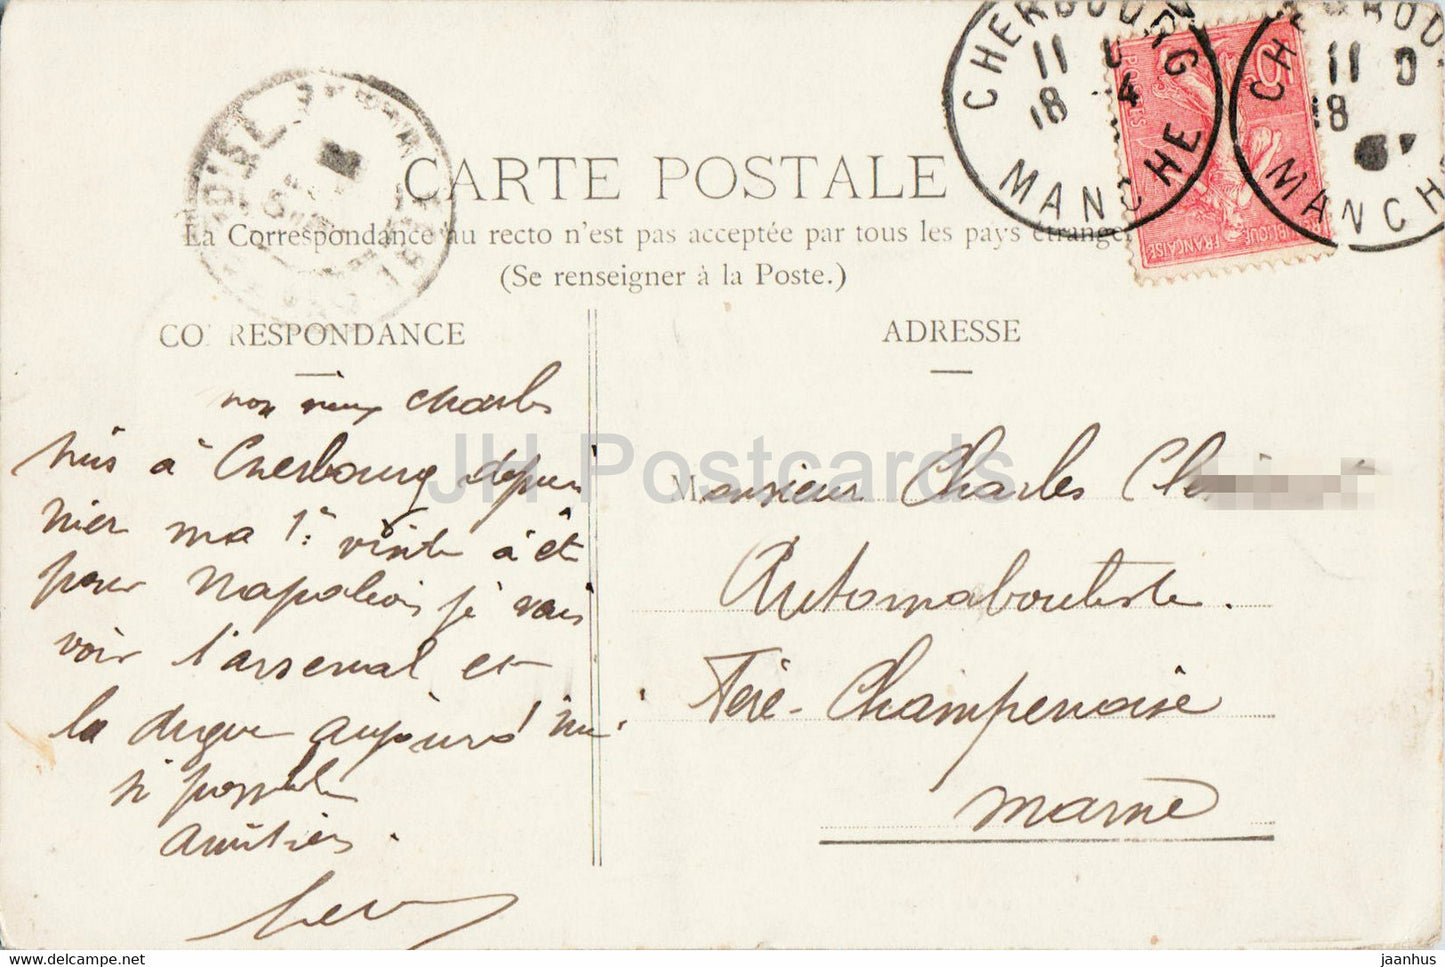 CARTE POSTALE
La Correspondance au recto n'est pas acceptée par tous les pays étrangers
(Se renseigner à la Poste.)
CHERBOURG
11
18
MANCHE
CHERBOU
11
18
MANCH
POSTES
10
RÉPUBLIQUE FRANÇAISE
CORRESPONDANCE
mon vieux Charles
suis à Cherbourg depuis
hier ma 1e visite a êté
pour Napoléon je vais
voir l'arsenal et
la digue aujourd'hui
si possible
Amitiés.
ADRESSE
Monsieur Charles
Automaboutiste.
Fère-Champenoise
Marne
JH Postcards
www.delcampe.net
jaanhus